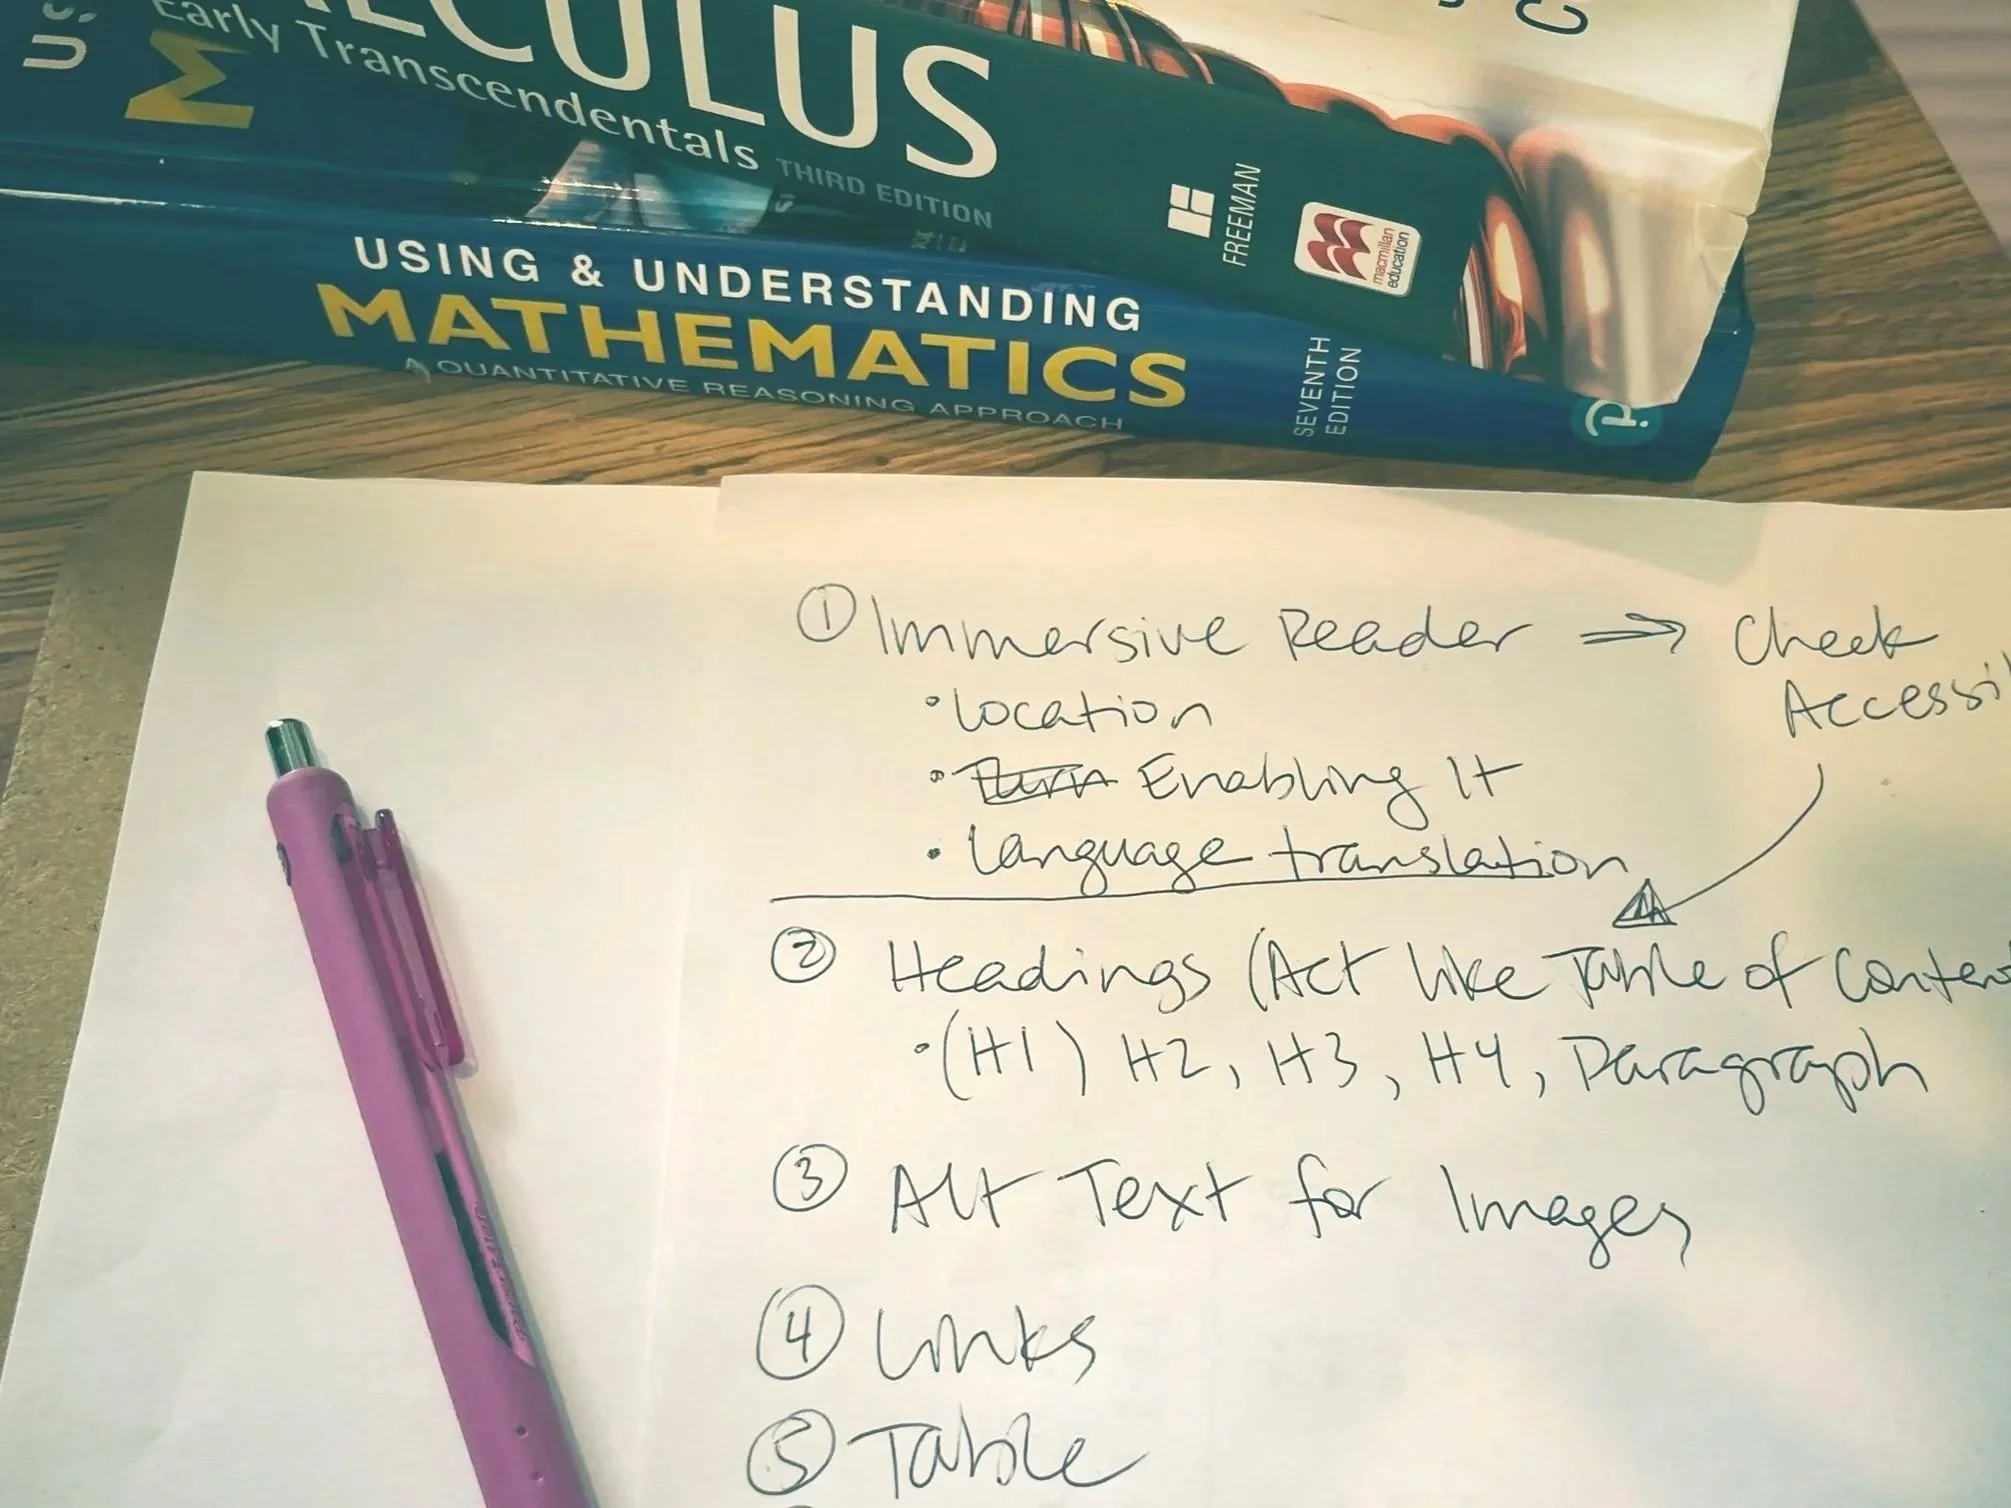 CULUS
Early Transcendentals THIRD EDITION
FREEMAN
macmillan
education
USING & UNDERSTANDING
MATHEMATICS
A QUANTITATIVE REASONING APPROACH
SEVENTH
EDITION
① Immersive Reader ⇒ Check
Accessi
• Location
• Turn Enabling It
• Language translation
② Headings (Act like Table of Conten
• (H1) H2, H3, H4, Paragraph
③ Alt Text for Images
④ Links
⑤ Table